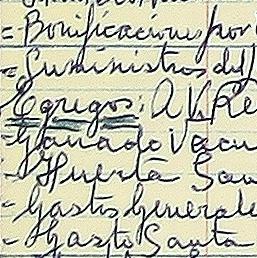 - Bonificaciones por
- Suministros de
Egregos; A.V. Re
- Ganado Vacu
- Huerta San
- Gastos Generale
- Gasto Santa